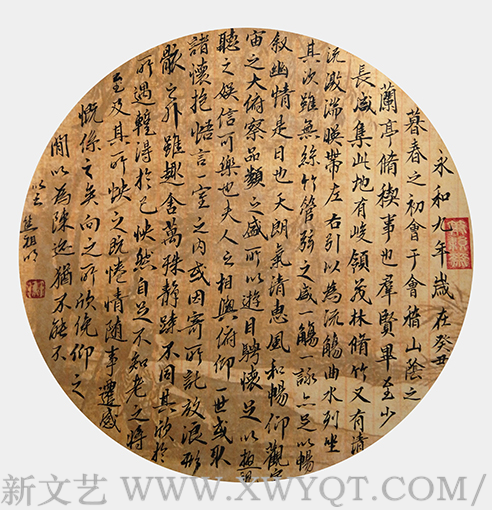 永和九年歲在癸丑
暮春之初會于會稽山陰之
蘭亭脩稧事也羣賢畢至少
長咸集此地有峻領茂林脩竹又有清
流激湍暎帶左右引以為流觴曲水列坐
其次雖無絲竹管弦之盛一觴一詠亦足以暢
叙幽情是日也天朗氣清惠風和暢仰觀宇
宙之大俯察品類之盛所以遊目騁懷足以極視
聽之娛信可樂也夫人之相與俯仰一世或取
諸懷抱悟言一室之內或因寄所託放浪形
骸之外雖趣舍萬殊靜躁不同其欣於
所遇輙得於己怏然自足不知老之將
至及其所怏之既惓情隨事遷感
慨係之矣向之所欣俛仰之
間以為陳迹猶不能不
以之
新文艺 WWW.XWYQT.COM/